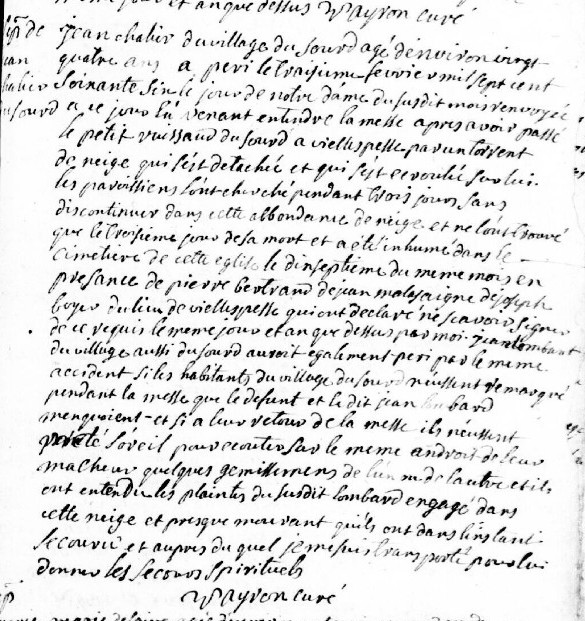 jour et an que dessus Vayron curé
Jean chalier du village du sourd agé denviron vingt
quatre ans a peri le troisieme fevrier mil sept cent
soixante six le jour de notre dame du susdit mois renvoyée
a ce jour la venant entendre la messe apres avoir passé
le petit ruissaud du sourd a viellespesse par un torrent
de neige qui sést detachée et qui sést ecroulée sur lui.
les paroissiens lónt cherché pendant trois jours sans
discontinuer dans cette abbondance de neige et ne lónt trouvé
que le troisieme jour de sa mort et a été inhumé dans le
cimetiere de cette eglise le dixseptieme du meme mois en
presance de pierre bertrand de jean malasaigne de joseph
boyer du lieu de viellespesse qui ont declaré ne scavoir signer
de ce requis le meme jour et an que dessus par moi. jean lombard
du village aussi du sourd auroit également peri par le meme
accident si les habitants du village du sourd néussent remarqué
pendant la messe que le defunt et le dit jean lombard
menquoient et si a leur retour de la messe ils néussent
preté loreil pour ecouter sur le meme androit de leur
malheur quelques gemissemens de lún ou de lautre et ils
ont entendu les plaintes du susdit lombard engagé dans
cette neige et presque mourant quils ont dans linstant
secouru et aupres du quel je me suis transporté pour lui
donner les secours spirituels
Vayron curé